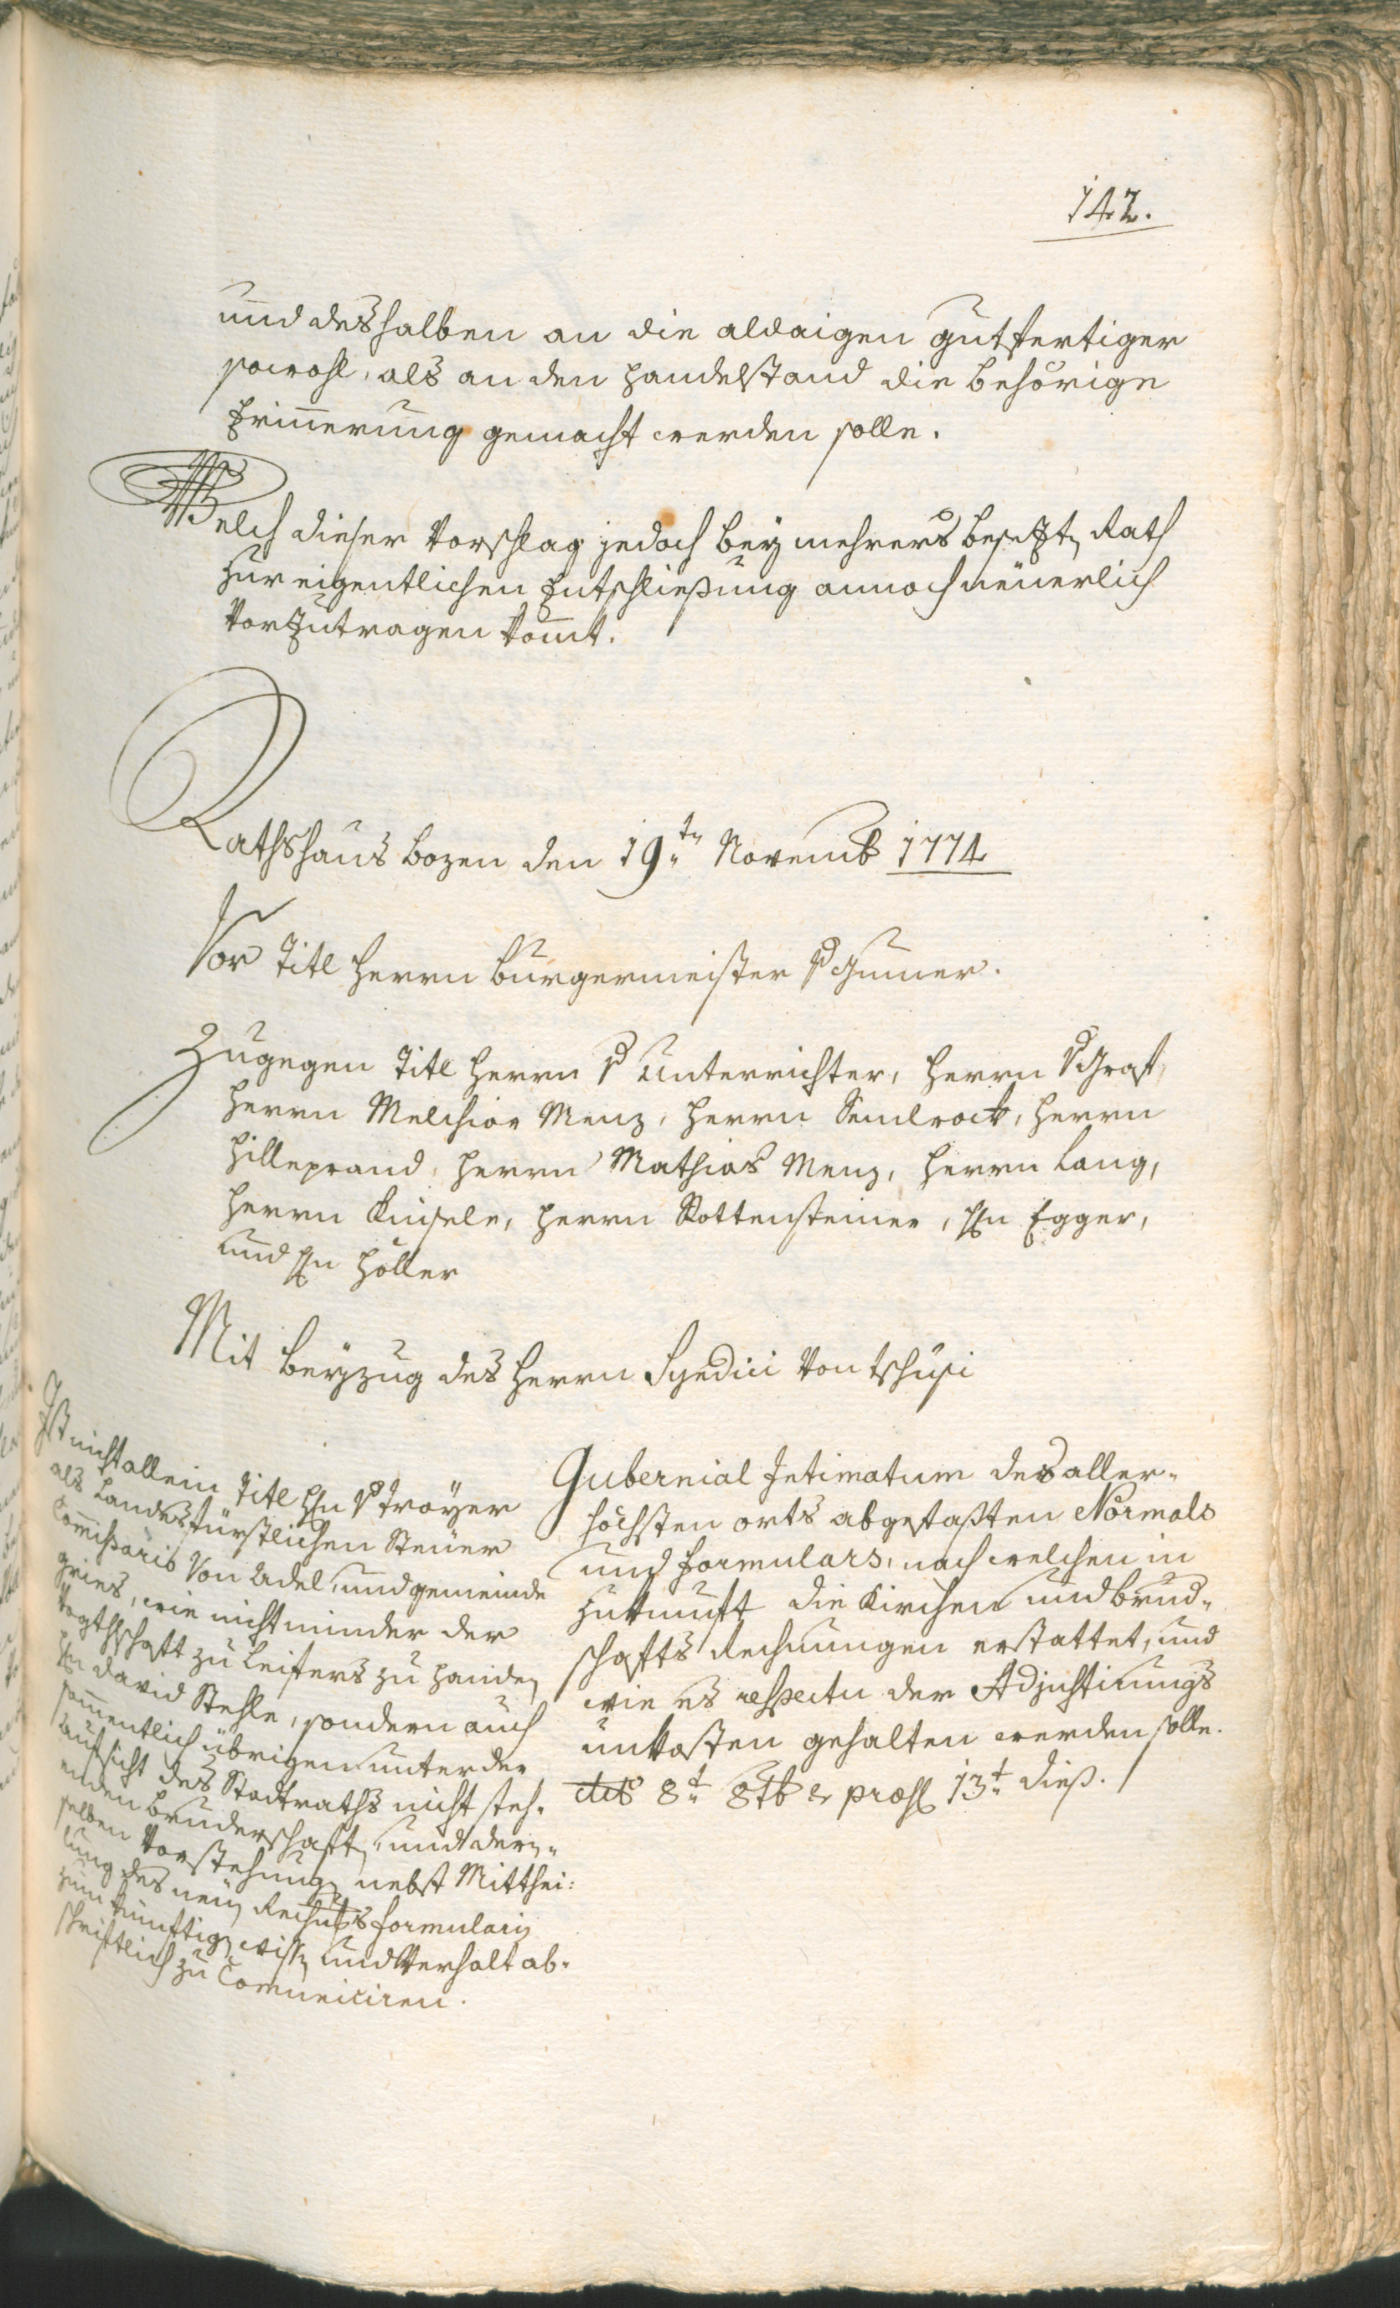 142.
und deshalben an die aldaigen gutfertiger
sowohl, als an den Handelstand die behörige
Erinnerung gemacht werden solle.
Welch dieser Vorschlag jedoch bey mehrers besetzten Rath
zur eigentlichen Entschließung annoch neüerlich
Vorzutragen komt.
Rathshaus Bozen den 19.ten Novemb 1774
Vor Titl Herrn Burgermeister v Gumer.
Zugegen Titl Herrn v Unterrichter, Herrn v Graff,
Herrn Melchior Menz, Herrn Semlrock, Herrn
Hilleprand, Herrn Mathias Menz, Herrn Lang,
Herrn Kinsele, Herrn Rottensteiner, Hn Egger,
und Hn Höller
Mit beyzug des Herrn Syndici von Tschusi
Ist nicht allein Titl Hn v Troÿer
als Landesfürstlichen Steüer
Commißario von Adel, und gemeinde
gries, wie nicht minder der
Vogthschaft zu Leifers zu handen
Hn David Stehle, sondern auch
sammentlich übrigen unter der
Aufsicht des Stadtraths nicht steh-
enden Bruderschaften, und der-
selben Vorstehung nebst Mitthei:
lung des neüen Rechnungs formulary
zum künftigen wissen und Verhalt ab-
schriftlich zu Communiciren.
Gubernial Intimatum des aller-
höchsten orts abgefaßten Normals
und formulars, nach welchen in
Zukunft die Kirchen und brud-
schafts Rechnungen erstattet, und
wie es respectu der Adjustirungs
unkosten gehalten werden solle.
dto 8t 8tb et præs 13t dieß.